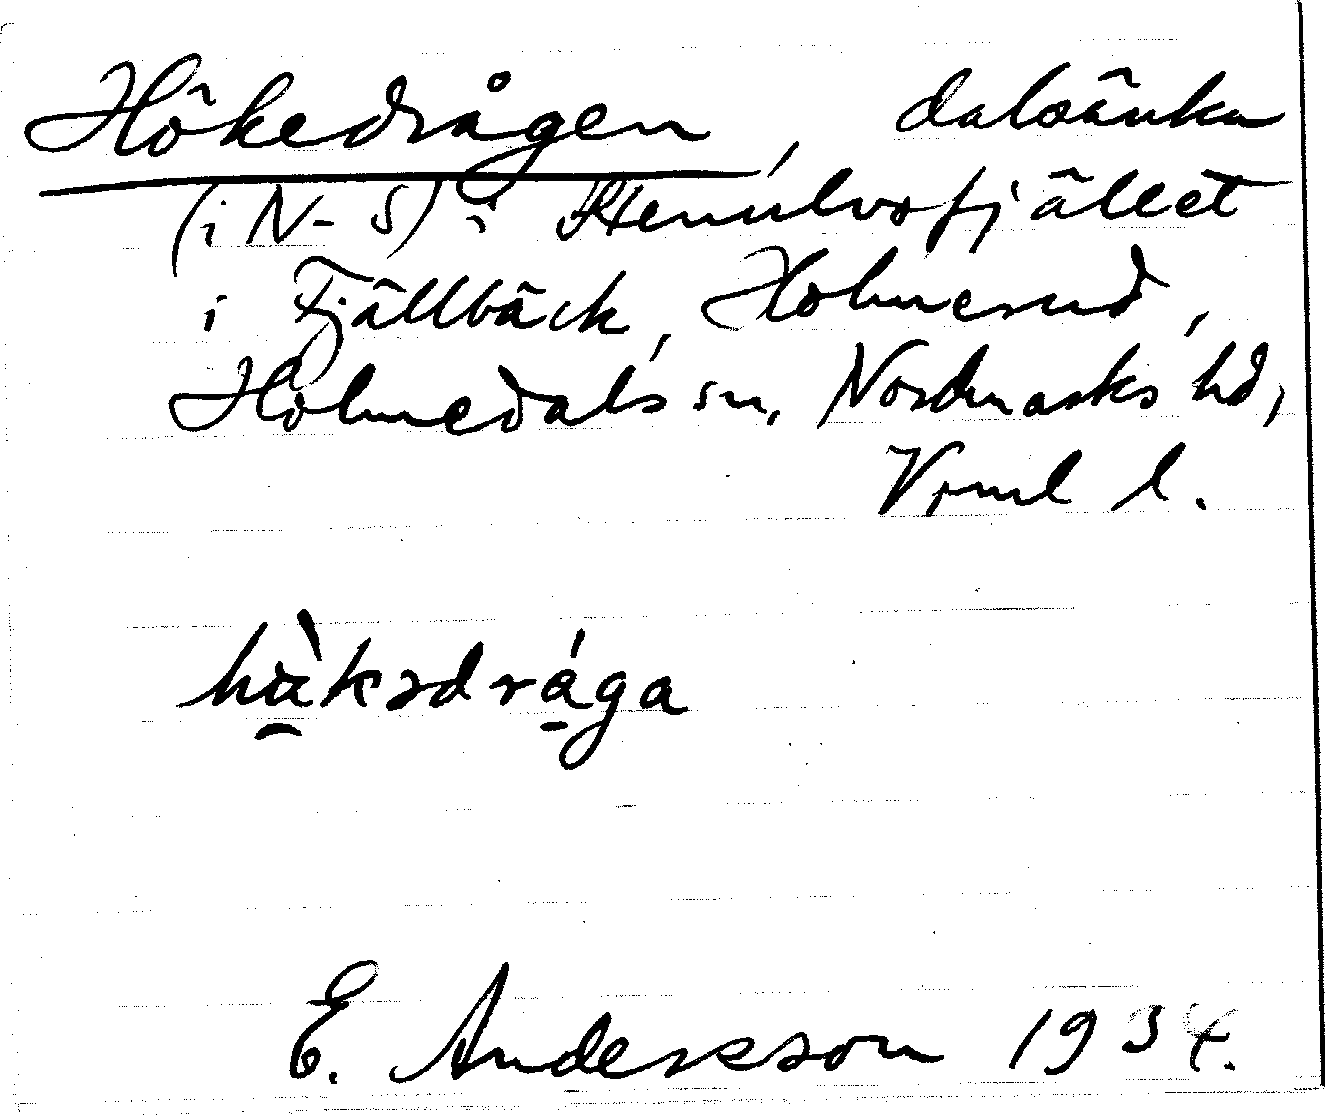 Hökedrågen, dalsänka
(i N-S) i Stenulvsfjället
i Fjällbäck, Holmerud,
Holmedals sn, Nordmarks hd,
Vrml l.
hὰkədråga
E. Andersson 1934.